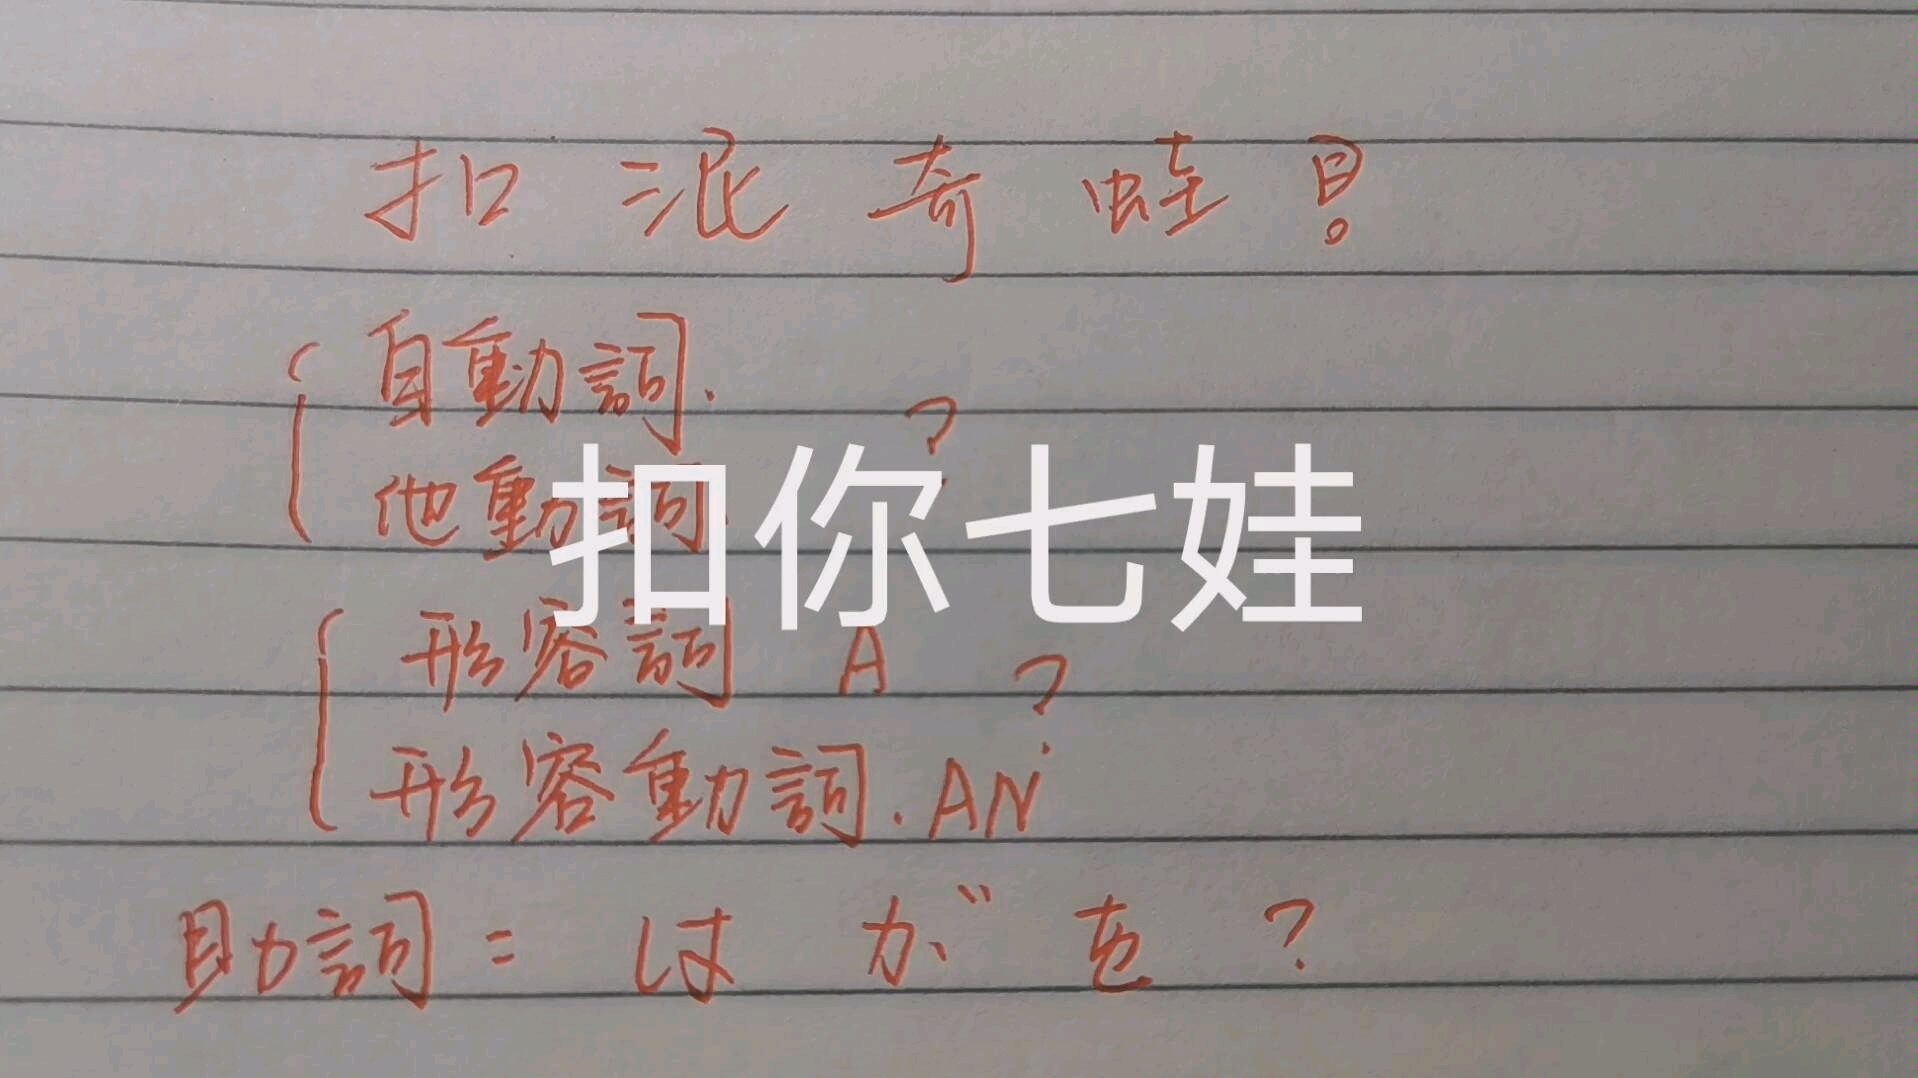 扣泥奇蛙!
自動詞.
他動詞. ?
扣你七娃
形容詞 A
形容動詞. AN ?
助詞= は が を ?